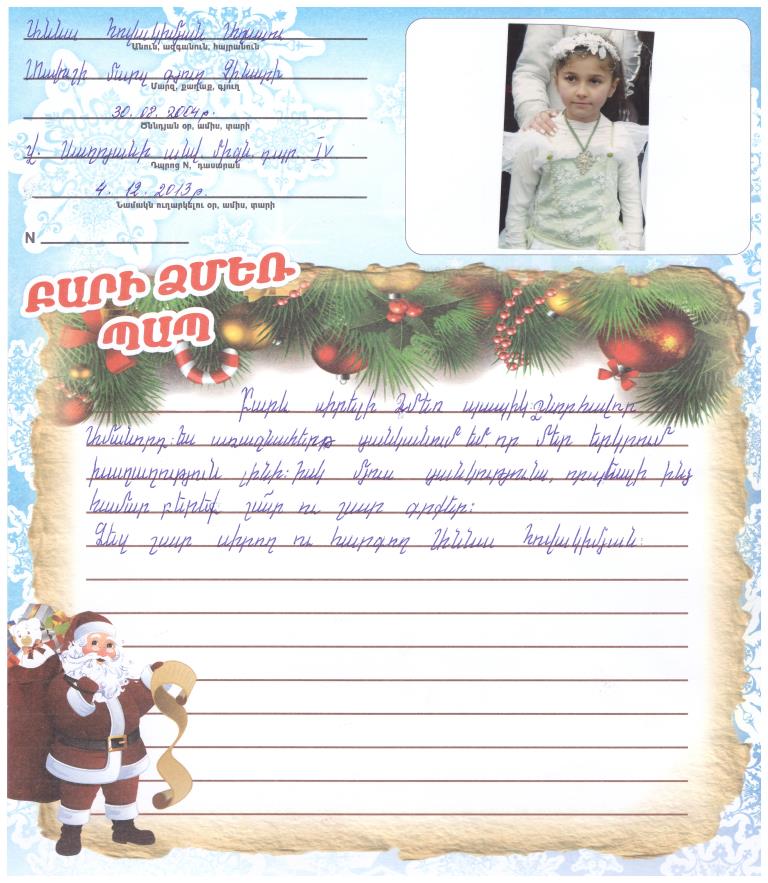 Աննա Հովակիմյան Արայի
Անուն, ազգանուն, հայրանուն
մարզ գյուղ
Մարզ, քաղաք, գյուղ
30. 08. 2004թ.
Ծննդյան օր, ամիս, տարի
անվ միջն. դպր. IV
Դպրոց N, դասարան
4. 12. 2013թ.
Նամակն ուղարկելու օր, ամիս, տարի
N
ԲԱՐԻ ՁՄԵՌ
ՊԱՊ
Բարև սիրելի Ձմեռ պապիկ շնորհավոր
Ամանորդ: Ես առաջնահերթ ցանկանում եմ, որ մեր երկրում
խաղաղություն լինի: Իսկ մյուս ցանկությունս, որպեսզի ինձ
համար բերեք շատ ու շատ գրքեր:
Ձեզ շատ սիրող ու հարգող Աննա Հովակիմյան: